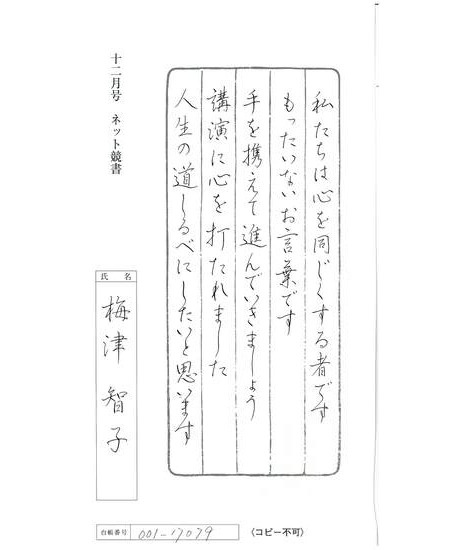 十二月号 ネット競書
私たちは心を同じくする者です
もったいないお言葉です
手を携えて進んでいきましょう
講演に心を打たれました
人生の道しるべにしたいと思います
氏名
梅津 智子
台帳番号 001-17079
〈コピー不可〉